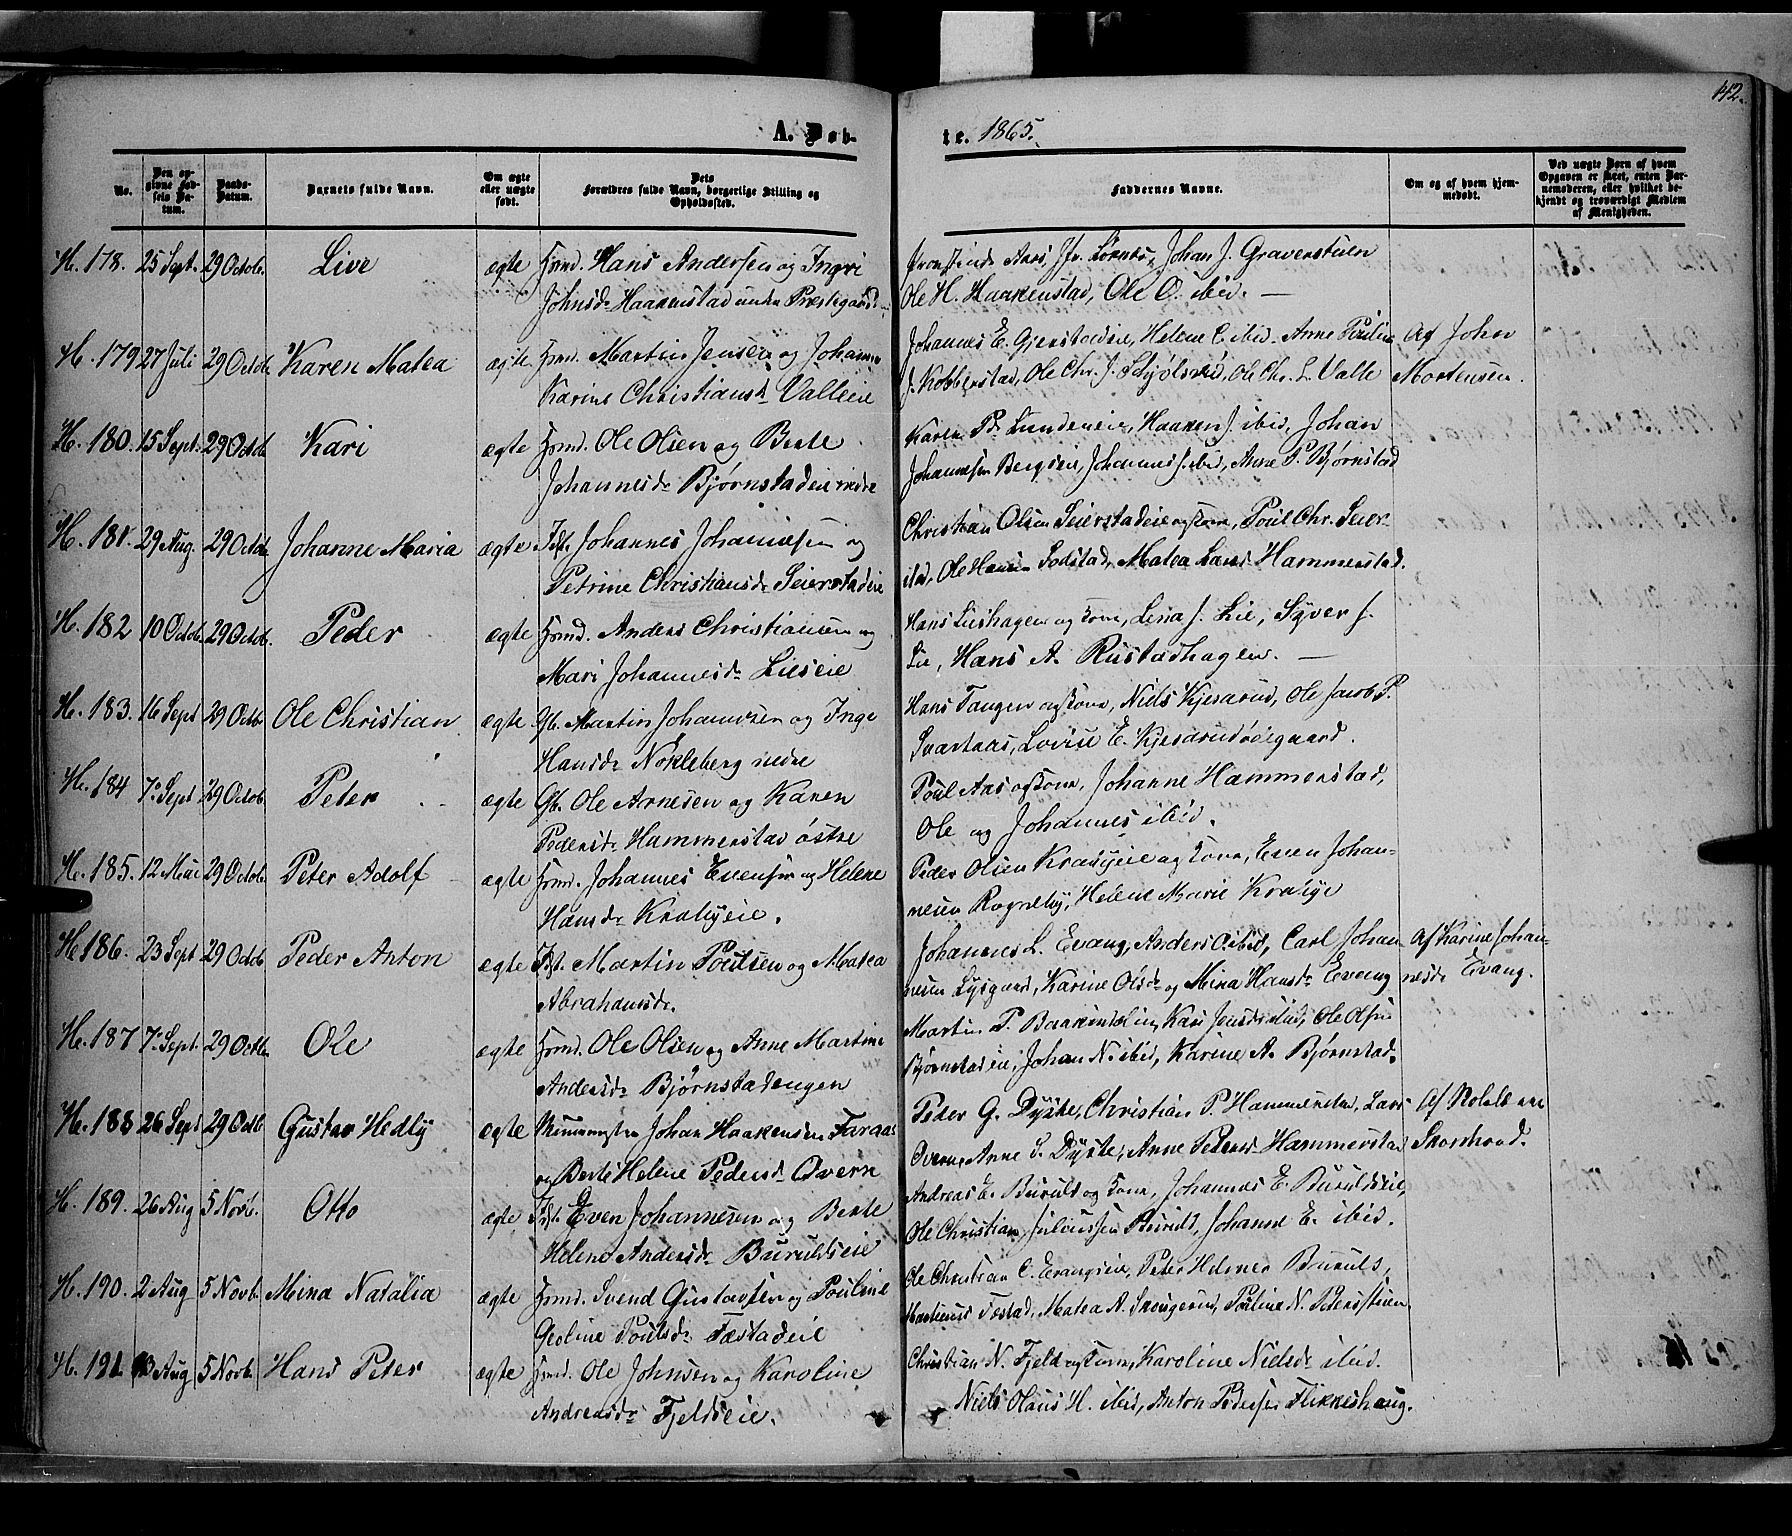 142.
A. Døb-
te. 1865.
No.
Den opgivne Fødsels Datum.
Daabs-Datum.
Barnets fulde Navn.
Om ægte eller uægte født.
Dets Forældres fulde Navn, borgerlige Stilling og Opholdssted.
Faddernes Navne.
Om og af hvem hjemmedøbt.
Ved uægte Børn af hvem Opgaven er skeet, enten Barnemoderen, eller hvilket bekjendt og troværdigt Medlem af Menigheden.
H. 178. 25 Sept. 29 Octob. Live ægte Hrmd. Hans Andersen og Ingri
Johnsdr Haakenstad under Præstegaard
Johan J. Gravenstuen
Ole H. Haakenstad, Ole O. ibid. —
H. 179 27 Juli 29 Octob. Karen Matea ægte Hrmd. Martin Jensen og Johanne
Karine Christiansdr Valleeie
Johannes E. Gjerstadeie, Helene E. ibid. Anne Pauline Af Johan
J. Kobberstad, Ole Chr. J. Skjølsrud, Ole Chr. L. Valle Mortensen.
H. 180. 15 Sept. 29 Octob. Kari ægte Hrmd. Ole Olsen og Berte
Johannesdr Bjørnstadeie nedre
Karen Pdr Lundeneie, Haaken J. ibid, Johan
Johannesen Bergseie, Johannes J. ibid, Anne P. Bjørnstad
H. 181. 29 Aug. 29 Octob. Johanne Maria ægte Inst. Johannes Johannesen og
Petrine Christiansdr Seierstadeie
Christian Olsen Seierstadeie og Kone, Poul Chr. Seier-
stad, Ole Hansen Sodstad, Matea Larsd Hammerstad.
H. 182 10 Octob. 29 Octob. Peder ægte Hrmd. Anders Christiansen og
Mari Johannesdr Lieseie
Hans Lieshagen og Kone, Lena J. Lie, Syver J.
Lie, Hans A. Rustadhagen. —
H. 183. 16 Sept 29 Octb Ole Christian ægte Gb. Martin Johannesen og Inge
Hansdr Nøkleberg nedre
Hans Tangen og Kone, Niels Kjesarud, Ole Jacob P.
Svartaas, Lovise E. Kjesarudødegaard.
H. 184 7. Sept 29 Octob Peter ægte Gb. Ole Arnesen og Karen
Pedersdr Hammerstad østre
Poul Aas og Kone, Johanne Hammerstad,
Ole og Johannes ibid.
H. 185. 12 Mai 29 Octob. Peter Adolf ægte Hrmd. Johannes Evensen og Helene
Hansdr Krabyeie.
Peder Olsen Krabyeie og Kone, Even Johan-
nesen Rogneby, Helene Marie Krabye
H. 186. 23 Sept 29 Octob Peder Anton ægte Inst. Martin Poulsen og Matea
Abrahamsdr.
Johannes L. Evang, Anders ibid, Carl Johan- Af Karine Johan-
nesen Lysgaard, Karine Olsdr og Mina Hansdr Evang nesdr Evang.
H. 187 7. Sept. 29 Octbr. Ole ægte Hrmd. Ole Olsen og Anne Martine
Andersdr Bjørnstadengen
Martin P. Baakenstølen, Kari Jensdr ibid, Ole Olsen
Bjørnstadeie, Johan N. ibid, Karine A. Bjørnstad.
H. 188 26 Sept 29 Octb Gustav Hedly ægte Johan Haakensen Faraas
og Berte Helene Pedersdr Qvern
Peder G. Dyste, Christian P. Hammerstad, Lars
Qvern, Anne S. Dyste, Anne Pedersdr Hammerstad
H. 189. 26 Aug 5 Novb. Otto ægte Inst. Even Johannesen og Berte
Helene Andersdr Buruldseie
Andreas E. Buruld og Kone, Johannes E. Buruldseie,
Ole Christian Juliussen Buruld, Johanne E. ibid.
H. 190. 2 Aug 5 Novb. Mina Natalia ægte Hrmd. Svend Gustavsen og Pouline
Geoline Poulsdr Fæstadeie
Ole Christian C. Evangseie, Peter Helmer Buruls,
Martinus Fæstad, Matea A. Skougerud, Pouline N. Pdersstuen.
H. 191. 13 Aug 5 Novb. Hans Peter ægte Hrmd. Ole Johnsen og Karoline
Andreasdr Fjeldseie.
Christian N. Fjeld og Kone, Karoline Nielsdr ibid.
Niels Olaus H. ibid, Anton Pedersen Flikkeshaug.